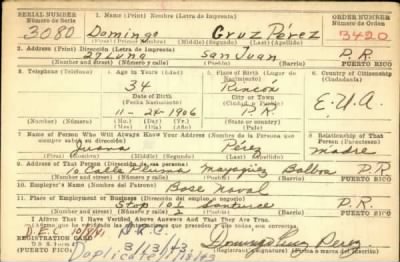 SERIAL NUMBER 1. Name (Print) Nombre (Letra de Imprenta) ORDER NUMBER
Número de Serie Número de Orden
3080 Domingo Cruz Pérez 13420
(First) (Primer Nombre) (Middle) (Segundo) (Last) (Apellido)
2. Address (Print) Dirección (Letra de Imprenta)
27 Luna San Juan P.R.
(Number) (Número) (Street) (Calle) (Town) (Pueblo) (Barrio) PUERTO RICO
3. Telephone (Teléfono) 4. Age in Years (Edad) 5. Place of Birth (Lugar de Nacimiento) 6. Country of Citizenship (Ciudadanía)
34 Rincón
Date of Birth City or Town
(Fecha Nacimiento) (Ciudad o Pueblo) E.U.A.
11-24-1906 P.R.
Number (Número) (Mo.) (Day) (Yr.) State or country
(Mes) (Día) (Año) (Estado o país)
7. Name of Person Who Will Always Know Your Address (Nombre de la Persona que siempre sabrá su dirección) 8. Relationship of That Person (Parentesco)
Juana Pérez madre
(First) (Primer Nombre) (Middle) (Segundo) (Last) (Apellido)
9. Address of That Person (Dirección de esa persona)
Calle Mayagüez Balboa P.R.
(Number) (Número) (Street) (Calle) (Town) (Pueblo) (Barrio) PUERTO RICO
10. Employer's Name (Nombre del Patrono)
Base Naval
11. Place of Employment or Business (Sitio del empleo o negocio)
Stop Santurce P.R.
(Number) (Número) (Street) (Calle) (Town) (Pueblo) (Barrio) PUERTO RICO
I Affirm That I Have Verified Above Answers and That They Are True.
REGISTRATION CARD 3/13/43.
Duplicate Domingo Cruz Perez